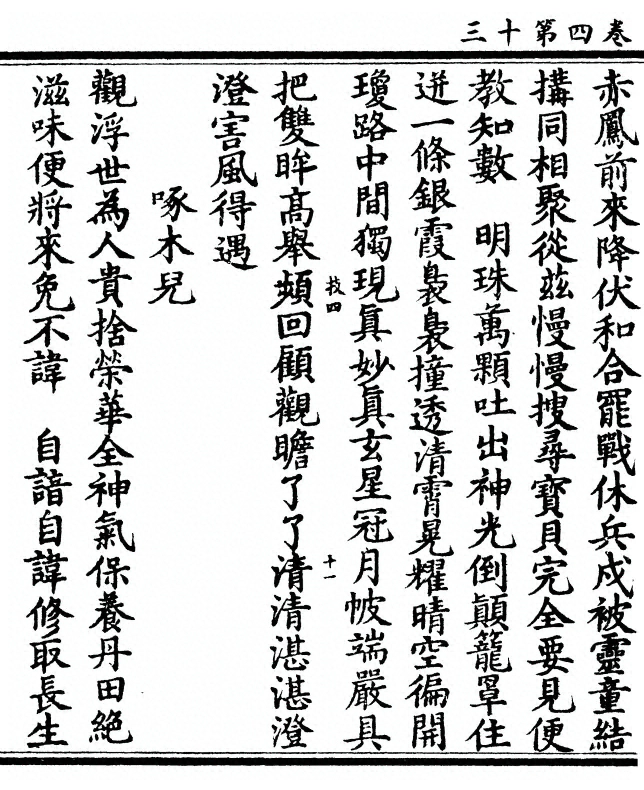 卷四第十三
赤鳳前來降伏和合罷戰休兵戍被靈童結
搆同相聚從茲慢慢搜尋寶貝完全要見便
教知數　明珠萬顆吐出神光倒顛籠罩住
迸一條銀霞裊裊撞透清霄晃耀晴空徧開
瓊路中間獨現真妙真玄星冠月帔端嚴具
技四
十一
把雙眸高舉頻回顧觀瞻了了清清湛湛澄
澄害風得遇
啄木兒
觀浮世為人貴捨榮華全神氣保養丹田絕
滋味便將來免不諱　自諳自諱修取長生